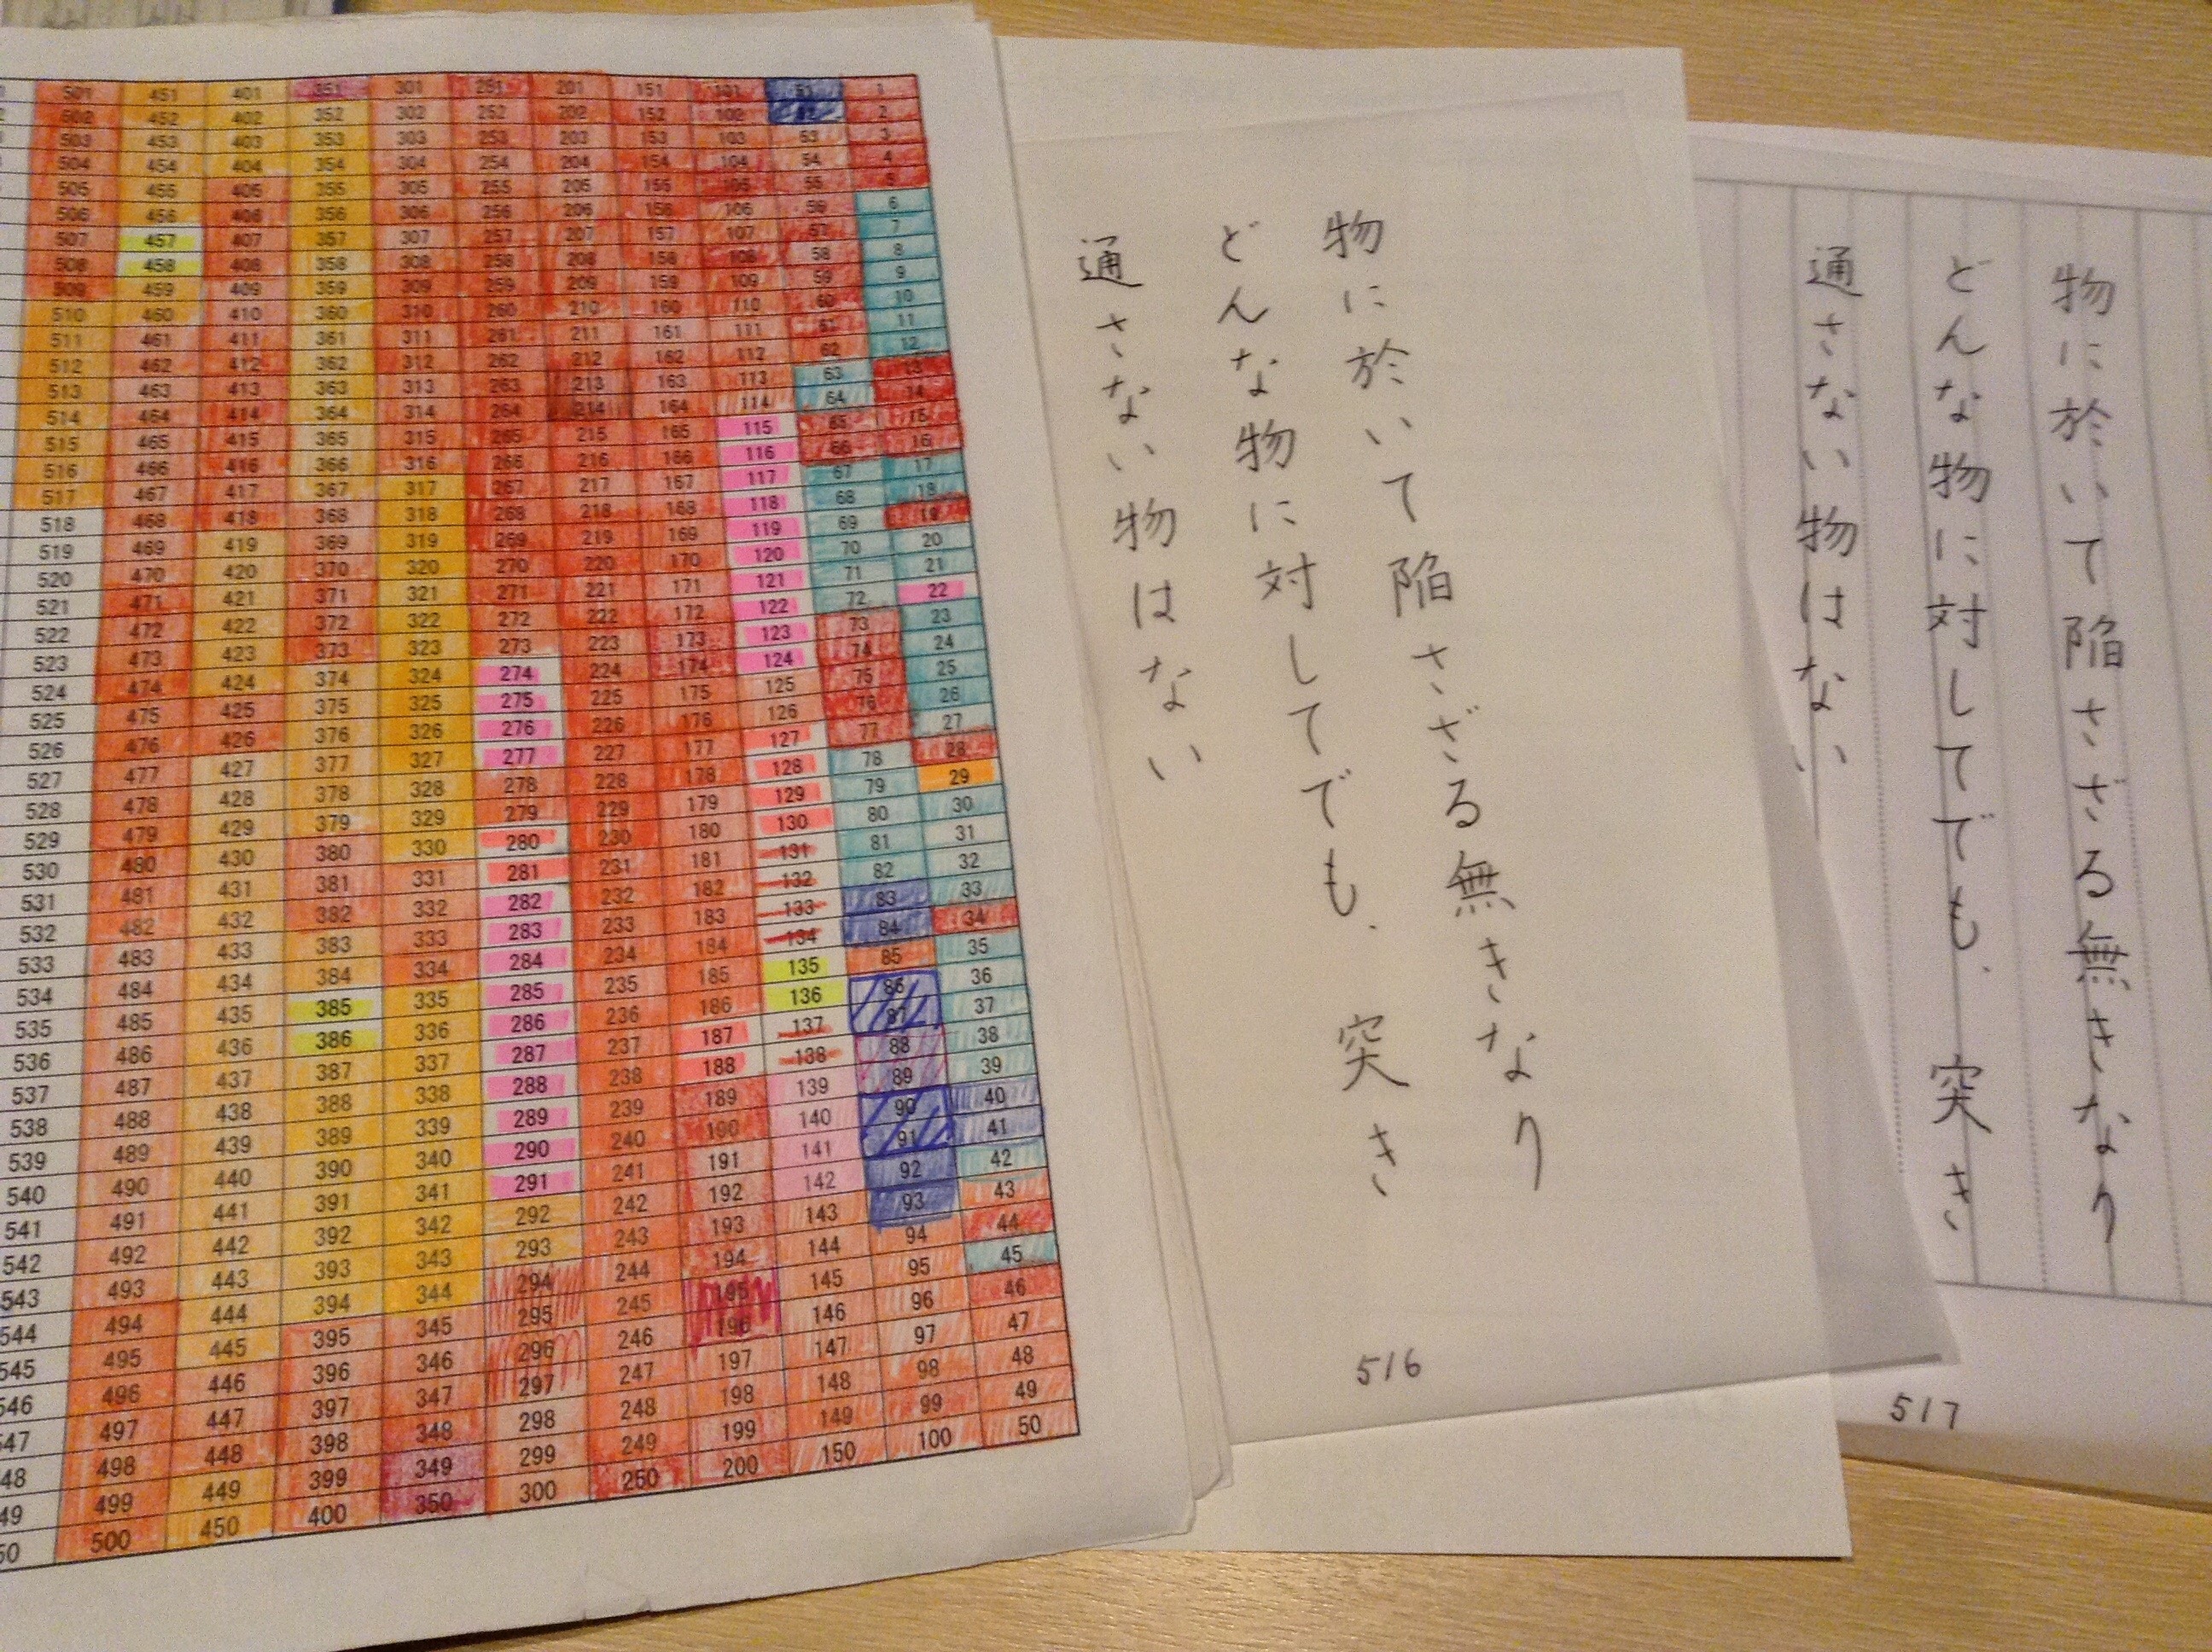 501 451 401 351 301 251 201 151 101 51 1
502 452 402 352 302 252 202 152 102 52 2
503 453 403 353 303 253 203 153 103 53 3
504 454 404 354 304 254 204 154 104 54 4
505 455 405 355 305 255 205 155 105 55 5
506 456 406 356 306 256 206 156 106 56 6
507 457 407 357 307 257 207 157 107 57 7
508 458 408 358 308 258 208 158 108 58 8
509 459 409 359 309 259 209 159 109 59 9
510 460 410 360 310 260 210 160 110 60 10
511 461 411 361 311 261 211 161 111 61 11
512 462 412 362 312 262 212 162 112 62 12
513 463 413 363 313 263 213 163 113 63 13
514 464 414 364 314 264 214 164 114 64 14
515 465 415 365 315 265 215 165 115 65 15
516 466 416 366 316 266 216 166 116 66 16
517 467 417 367 317 267 217 167 117 67 17
518 468 418 368 318 268 218 168 118 68 18
519 469 419 369 319 269 219 169 119 69 19
520 470 420 370 320 270 220 170 120 70 20
521 471 421 371 321 271 221 171 121 71 21
522 472 422 372 322 272 222 172 122 72 22
523 473 423 373 323 273 223 173 123 73 23
524 474 424 374 324 274 224 174 124 74 24
525 475 425 375 325 275 225 175 125 75 25
526 476 426 376 326 276 226 176 126 76 26
527 477 427 377 327 277 227 177 127 77 27
528 478 428 378 328 278 228 178 128 78 28
529 479 429 379 329 279 229 179 129 79 29
530 480 430 380 330 280 230 180 130 80 30
531 481 431 381 331 281 231 181 131 81 31
532 482 432 382 332 282 232 182 132 82 32
533 483 433 383 333 283 233 183 133 83 33
534 484 434 384 334 284 234 184 134 84 34
535 485 435 385 335 285 235 185 135 85 35
536 486 436 386 336 286 236 186 136 86 36
537 487 437 387 337 287 237 187 137 87 37
538 488 438 388 338 288 238 188 138 88 38
539 489 439 389 339 289 239 189 139 89 39
540 490 440 390 340 290 240 190 140 90 40
541 491 441 391 341 291 241 191 141 91 41
542 492 442 392 342 292 242 192 142 92 42
543 493 443 393 343 293 243 193 143 93 43
544 494 444 394 344 294 244 194 144 94 44
545 495 445 395 345 295 245 195 145 95 45
546 496 446 396 346 296 246 196 146 96 46
547 497 447 397 347 297 247 197 147 97 47
48 498 448 398 348 298 248 198 148 98 48
49 499 449 399 349 299 249 199 149 99 49
50 500 450 400 350 300 250 200 150 100 50
物に於いて陥さざる無きなり
どんな物に対してでも、突き
通さない物はない
516
物に於いて陥さざる無きなり
どんな物に対してでも、突き
通さない物はない
517